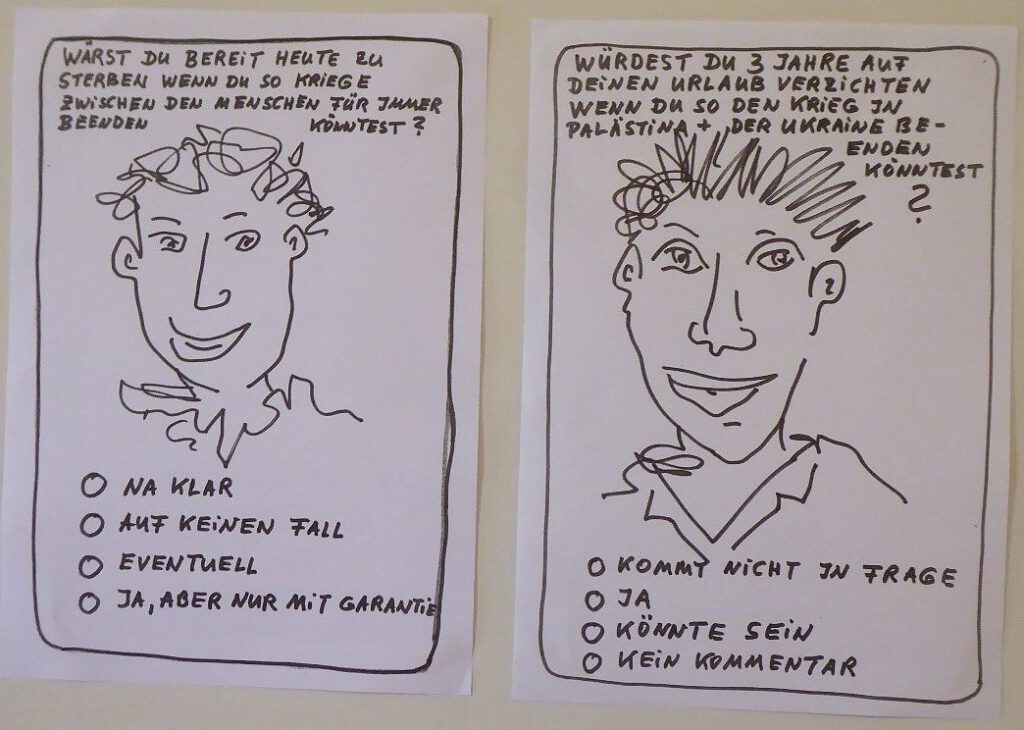 WÄRST DU BEREIT HEUTE ZU
STERBEN WENN DU SO KRIEGE
ZWISCHEN DEN MENSCHEN FÜR IMMER
BEENDEN KÖNNTEST?
NA KLAR
AUF KEINEN FALL
EVENTUELL
JA, ABER NUR MIT GARANTIE
WÜRDEST DU 3 JAHRE AUF
DEINEN URLAUB VERZICHTEN
WENN DU SO DEN KRIEG IN
PALÄSTINA + DER UKRAINE BE-
ENDEN
KÖNNTEST
?
KOMMT NICHT IN FRAGE
JA
KÖNNTE SEIN
KEIN KOMMENTAR